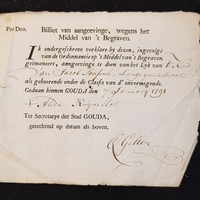 Pro Deo.
Billiet van aangeevinge, wegens het
Middel van 't Begraven.
IK ondergeschreve verklare by dezen, ingevolge
van de Ordonnantie op 't Middel van 't Begraven
geëmaneert, aangeevinge te doen van het Lyk van 't Kind
van Jacob
als gehoorende onder de Classe van d'onvermogende.
Gedaan binnen GOUDA den 7 January 1791
Ter Secretarye der Stad GOUDA,
geteekend op datum als boven.